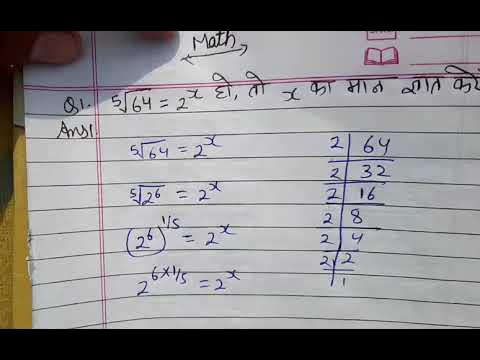 Math
Q1. ⁵√64 = 2^x हो, तो x का मान ज्ञात करें
Ans1.
⁵√64 = 2^x
⁵√2^6 = 2^x
(2^6)^1/5 = 2^x
2^6×1/5 = 2^x
2 | 64
2 | 32
2 | 16
2 | 8
2 | 4
2 | 2
1